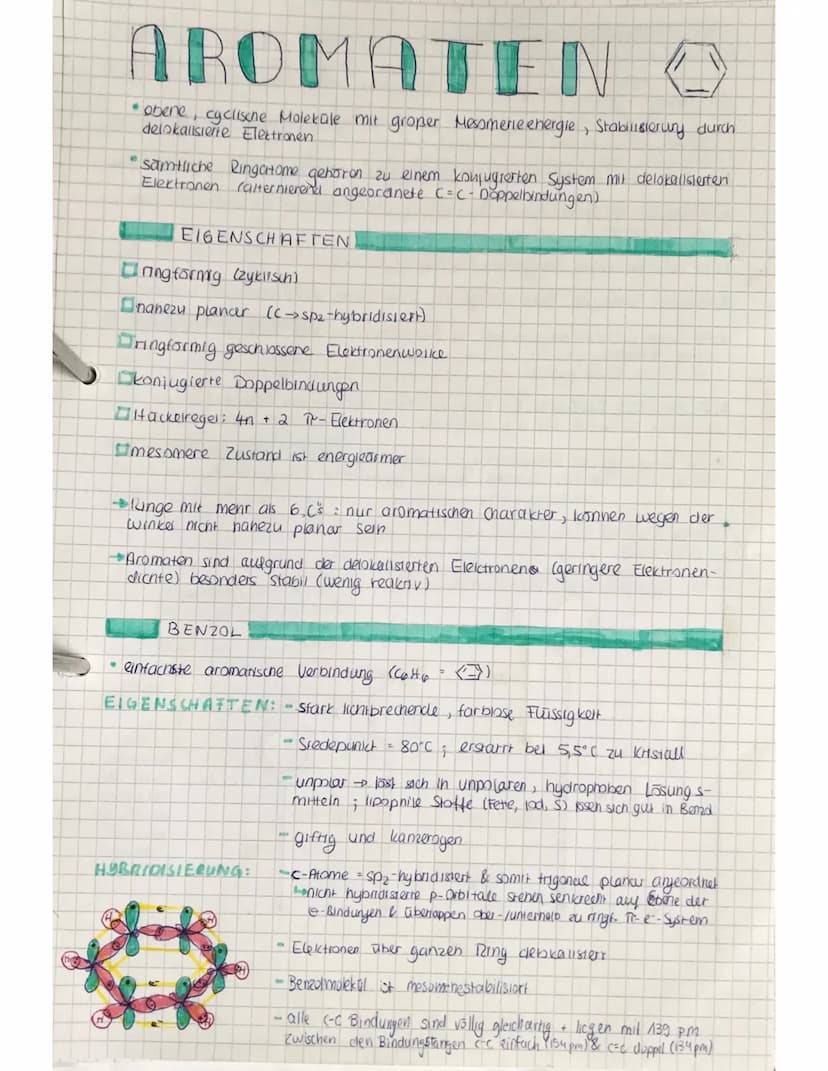 AROMATEN
• ebene, cyclische Moleküle mit großer Mesomerieenergie, Stabilisierung durch
delokalisierte Elektronen
• sämtliche Ringatome gehören zu einem konjugierten System mit delokalisierten
Elektronen (alternierend angeordnete C=C-Doppelbindungen)
EIGENSCHAFTEN
ringförmig (zyklisch)
nahezu planar (C→sp2-hybridisiert)
ringförmig geschlossene Elektronenwolke
konjugierte Doppelbindungen
Hückelregel: 4n + 2 π-Elektronen
mesomere Zustand ist energieärmer
→ Ringe mit mehr als 6 C's: nur aromatischen Charakter, können wegen der
Winkel nicht nahezu planar sein
→ Aromaten sind aufgrund der delokalisierten Elektronen (geringere Elektronen-
dichte) besonders stabil (wenig reaktiv)
BENZOL
• einfachste aromatische Verbindung (C6H6 = )
EIGENSCHAFTEN: - stark lichtbrechende, farblose Flüssigkeit
- Siedepunkt = 80°C ; erstarrt bei 5,5°C zu Kristall
- unpolar → löst sich in unpolaren, hydrophoben Lösungs-
mitteln ; lipophile Stoffe (Fette, Iod, S) lösen sich gut in Benzol
- giftig und kanzerogen
HYBRIDISIERUNG: - C-Atome = sp2-hybridisiert & somit trigonal planar angeordnet
↳ nicht hybridisierte p-Orbitale stehen senkrecht auf Ebene der
σ-Bindungen & überlappen ober-/unterhalb zu ringf. π-e⁻-System
- Elektronen über ganzen Ring delokalisiert
- Benzolmolekül ist mesomeriestabilisiert
- alle C-C Bindungen sind völlig gleichartig + liegen mit 139 pm
zwischen den Bindungslängen C-C einfach (154 pm) & C=C doppel (134 pm)
H
H
H
H
H
H